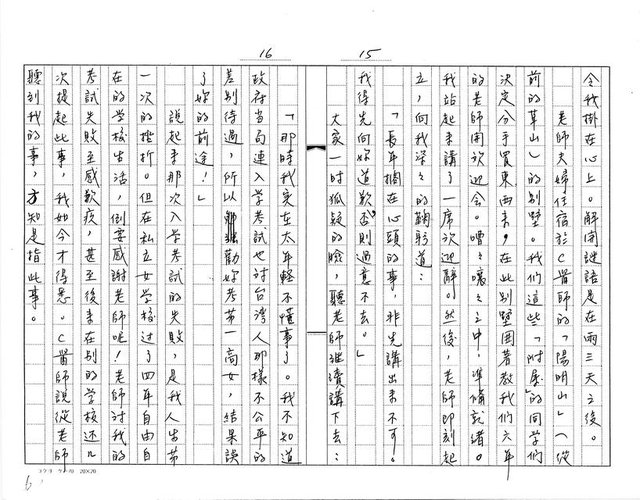 16
15
令我掛在心上。解開謎語是在兩三天之後。
老師夫婦住宿於C醫師的「陽明山」(從
前的草山)的別墅。我們這些「附屬」的同學們
決定分手買東西來,在此別墅圍著教我們六年
的老師開歡迎會。嘈々嚷々之中,準備就緒。
我站起來講了一席歡迎辭。然後,老師即刻起
立,向我深々的鞠躬道:
「長年擱在心頭的事,非先講出來不可。
我得先向妳道歉否則過意不去。」
大家一時狐疑的瞪,聽老師繼續講下去:
「那時我實在太年輕不懂事了。我不知道
政府當局連入學考試也討台灣人那樣不公平的
差別待遇,所以勸妳考第一高女,結果誤
了妳的前途!」
說起來那次入學考試的失敗,是我人生第
一次的挫折。但在私立女學校過了四年自由自
在的学校生活,倒要感謝老師呢!老師討我的
考試失敗至感歉疚,甚至後來在別的学校还几
次提起此事,我如今才得悉。C醫師說從老師
聽到我的事,方知是指此事。
コクヨ ケ-70 20×20
6